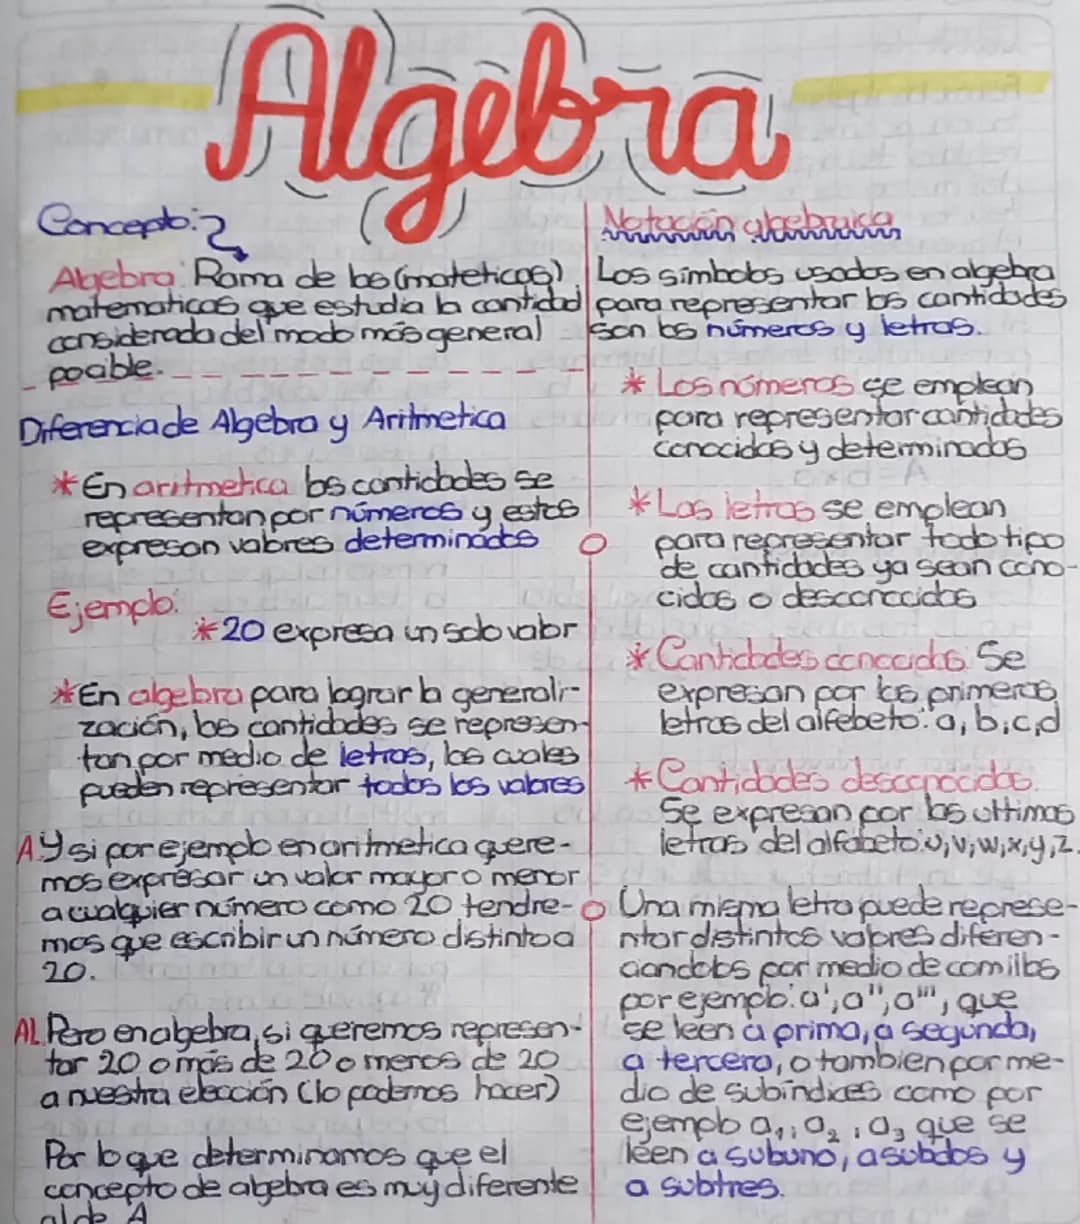 Algebra
Concepto:
Algebra: Rama de las (mateticas)
matematicas que estudia la cantidad
considerada del modo más general
posible.
Diferencia de Algebra y Aritmetica
* En aritmetica las cantidades se
representan por números y estos
expresan valores determinados
Ejemplo:
* 20 expresa un solo valor
* En algebra para lograr la generali-
zación, las cantidades se represen-
tan por medio de letras, las cuales
pueden representar todos los valores
A. Y si por ejemplo en aritmetica quere-
mos expresar un valor mayor o menor
a cualquier número como 20 tendre-
mos que escribir un número distinto a
20.
AL. Pero en algebra, si queremos represen-
tar 20 o más de 20 o menos de 20
a nuestra elección (lo podemos hacer)
Por lo que determinamos que el
concepto de algebra es muy diferente
al de A
Notación algebraica
Los símbolos usados en algebra
para representar las cantidades
son los números y letras.
* Los números se emplean
para representar cantidades
conocidas y determinadas
* Las letras se emplean
para representar todo tipo
de cantidades ya sean cono-
cidas o desconocidas
* Cantidades conocidas: Se
expresan por las primeras
letras del alfebeto: a, b, c, d
* Cantidades desconocidas.
Se expresan por las ultimas
letras del alfabeto: u, v, w, x, y, z.
Una misma letra puede represe-
ntar distintos valores diferen-
ciandolos por medio de comillas
por ejemplo: a', a'', a''', que
se leen a prima, a segunda,
a tercera, o tambien por me-
dio de subíndices como por
ejemplo a₁, a₂, a₃ que se
leen a subuno, a subdos y
a subtres.